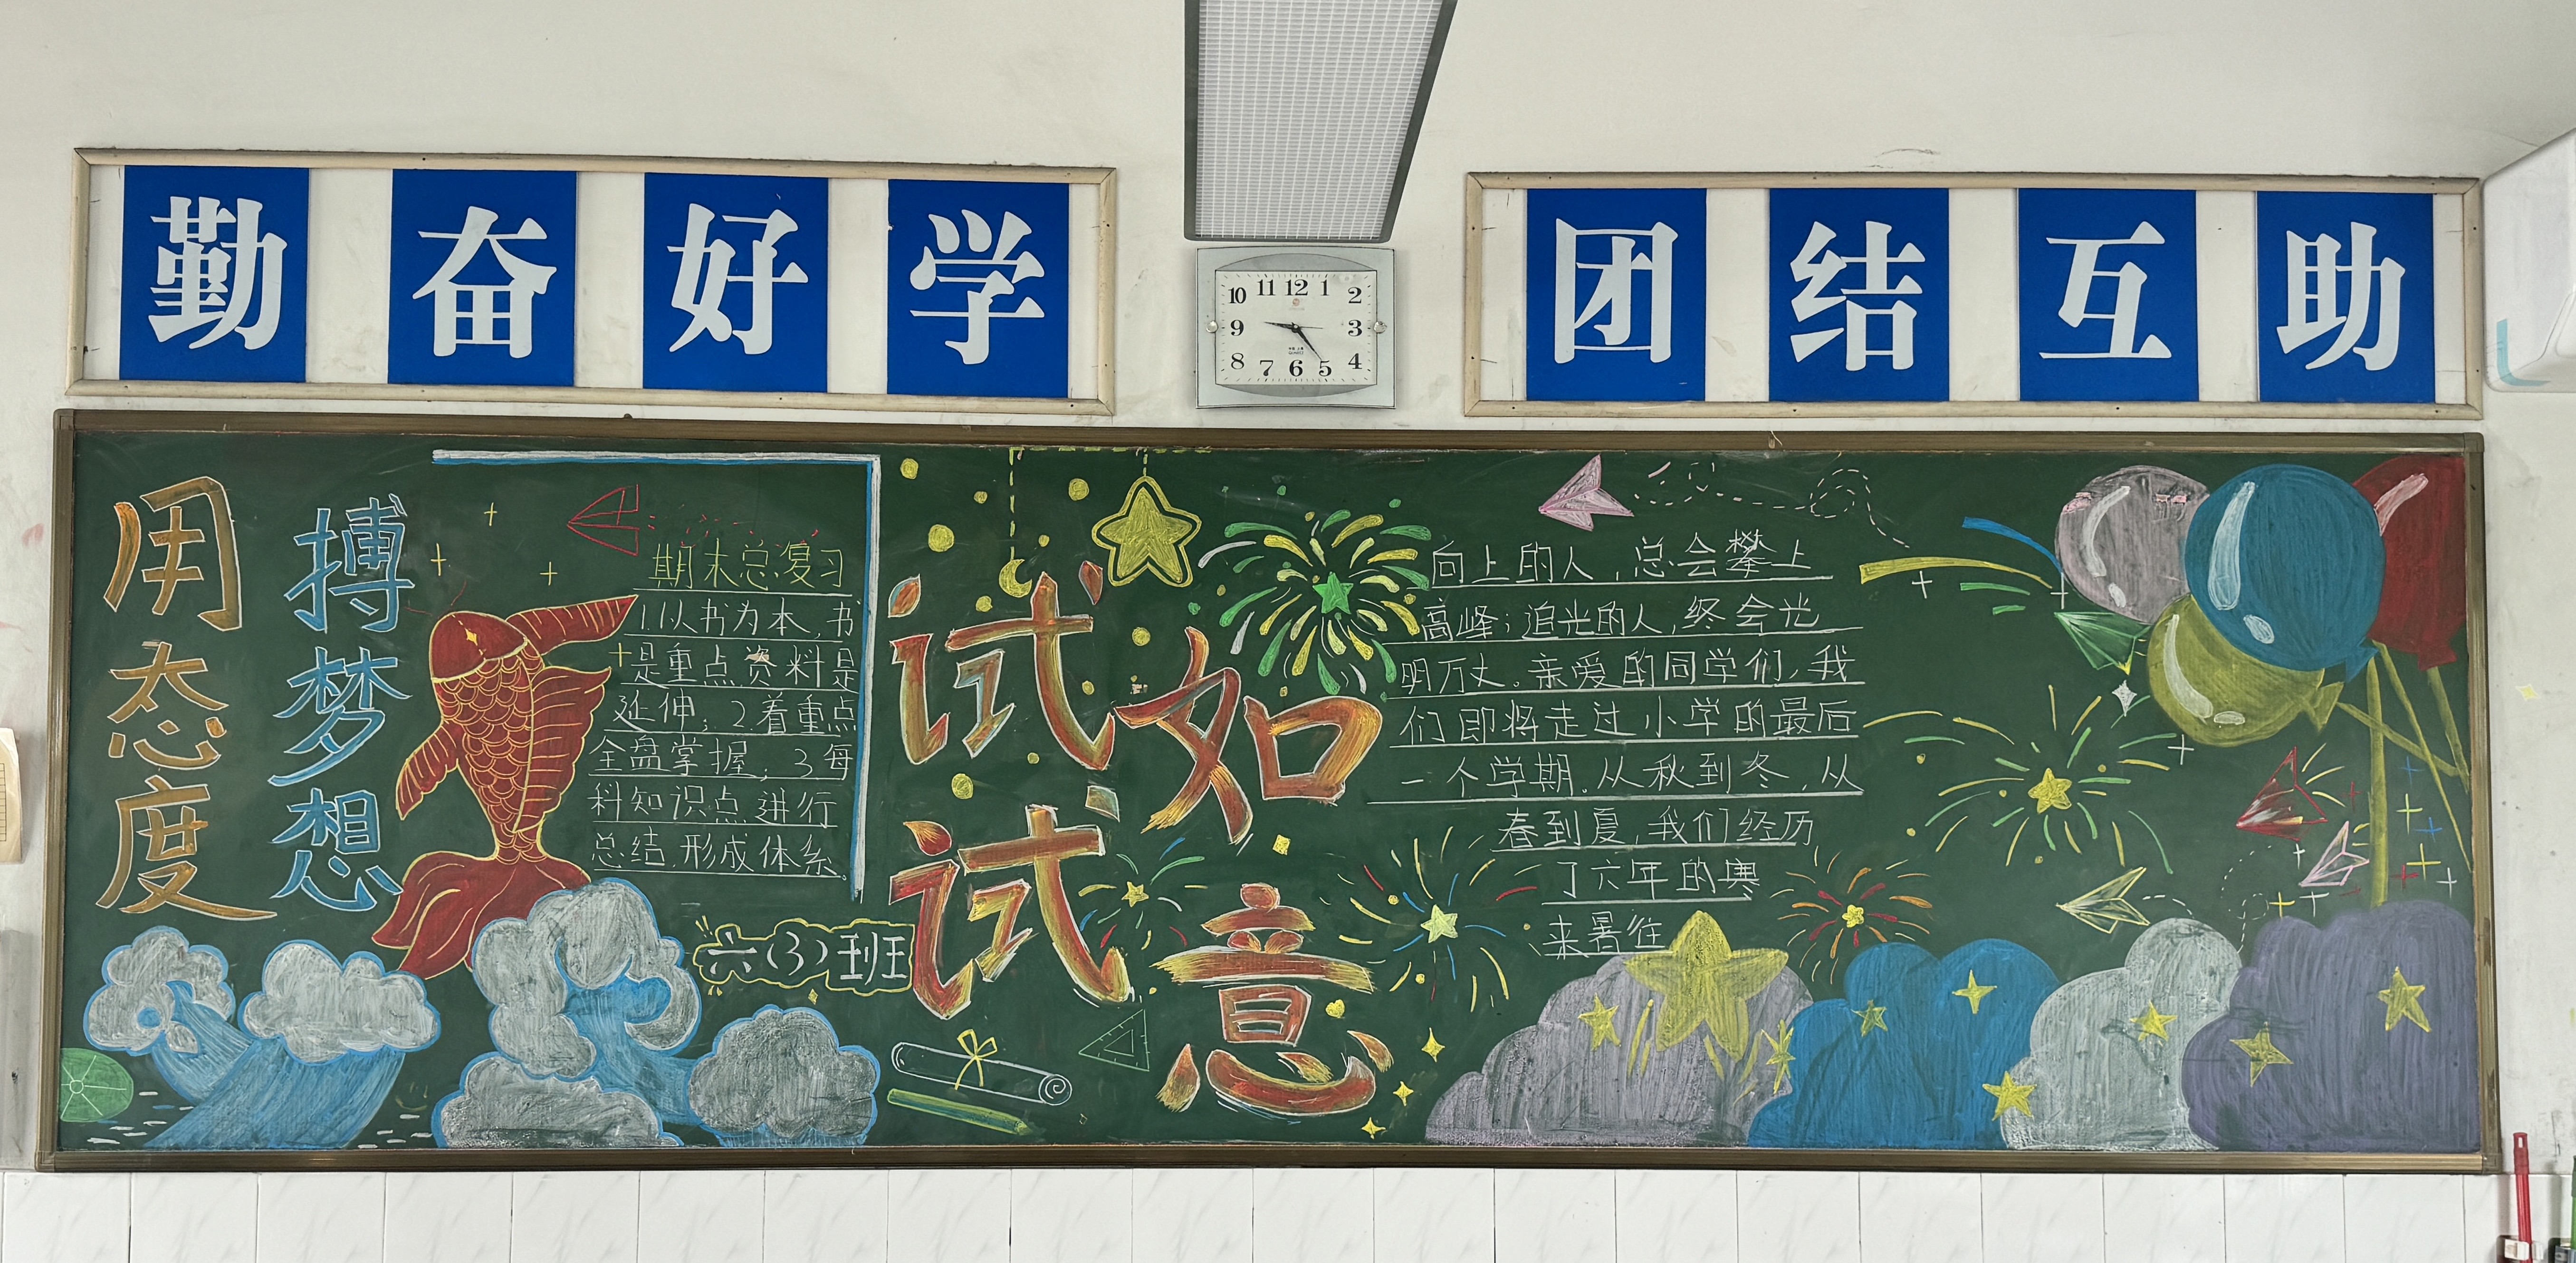 勤奋好学
团结互助
10 11 12 1 2
9 3
8 7 6 5 4
用态度
搏梦想
期末总复习
1.以书为本,书
是重点资料是
延伸;2.着重点
全盘掌握;3每
科知识点进行
总结.形成体系。
六(3)班
试试如意
向上的人,总会攀上
高峰;追光的人,终会光
明万丈。亲爱的同学们,我
们即将走过小学的最后
一个学期。从秋到冬,从
春到夏,我们经历
了六年的寒
来暑往